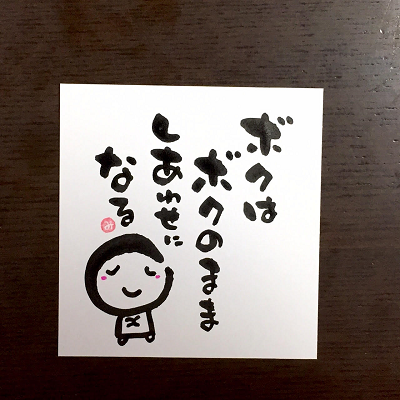 ボクは
ボクのまま
しあわせに
なる
み